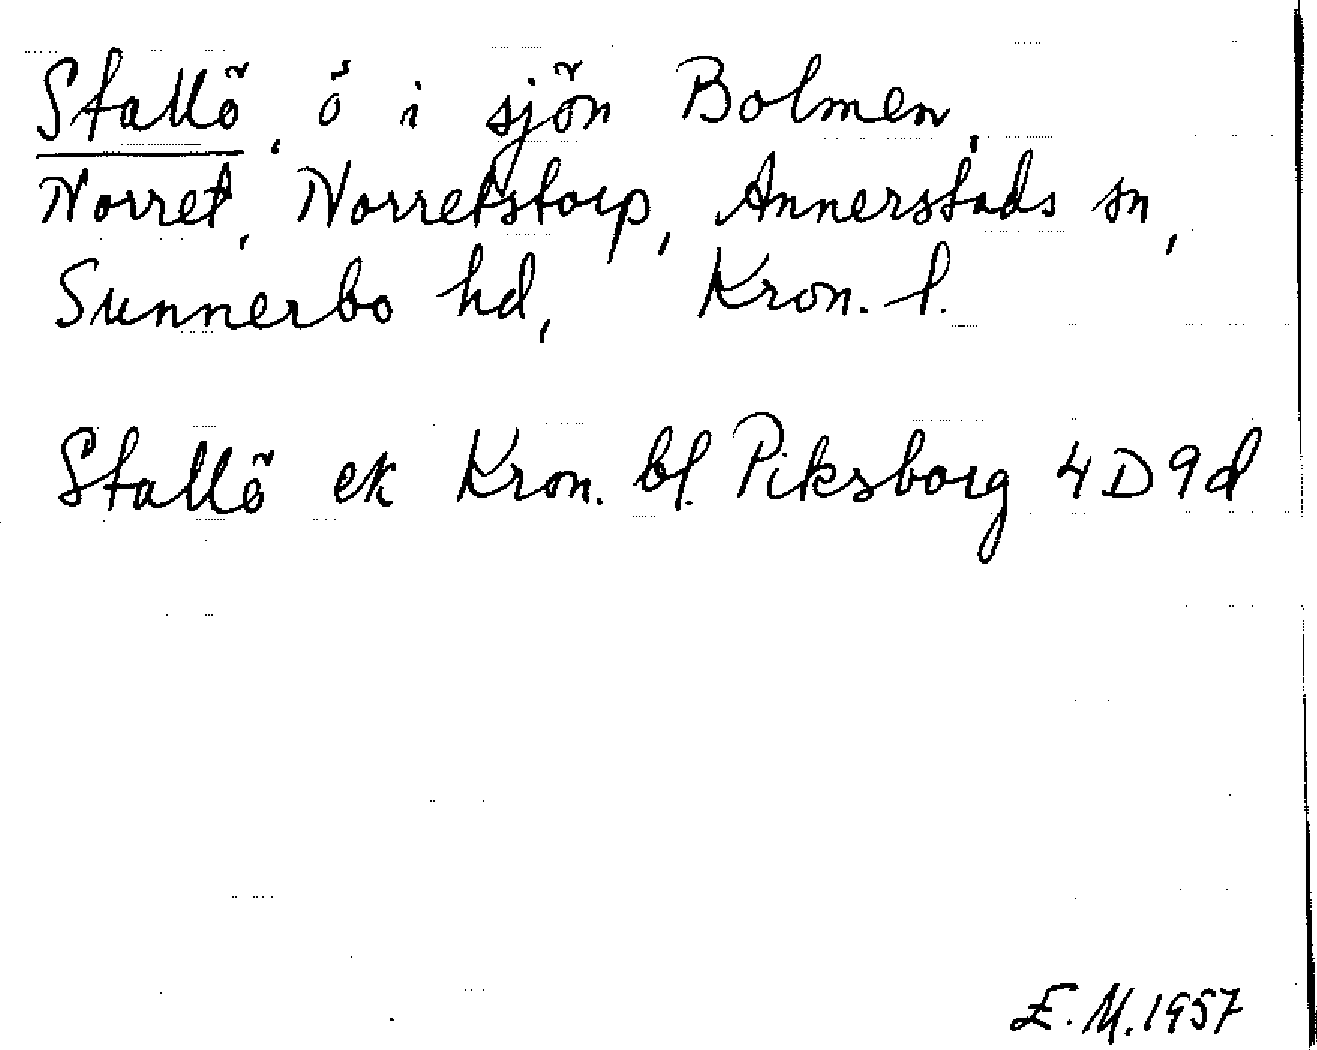 Stallö, ö i sjön Bolmen,
Norret, Norretstorp, Annerstads sn,
Sunnerbo hd, Kron. l.
Stallö ek Kron. bl. Piksborg 4D9d
E.M. 1957